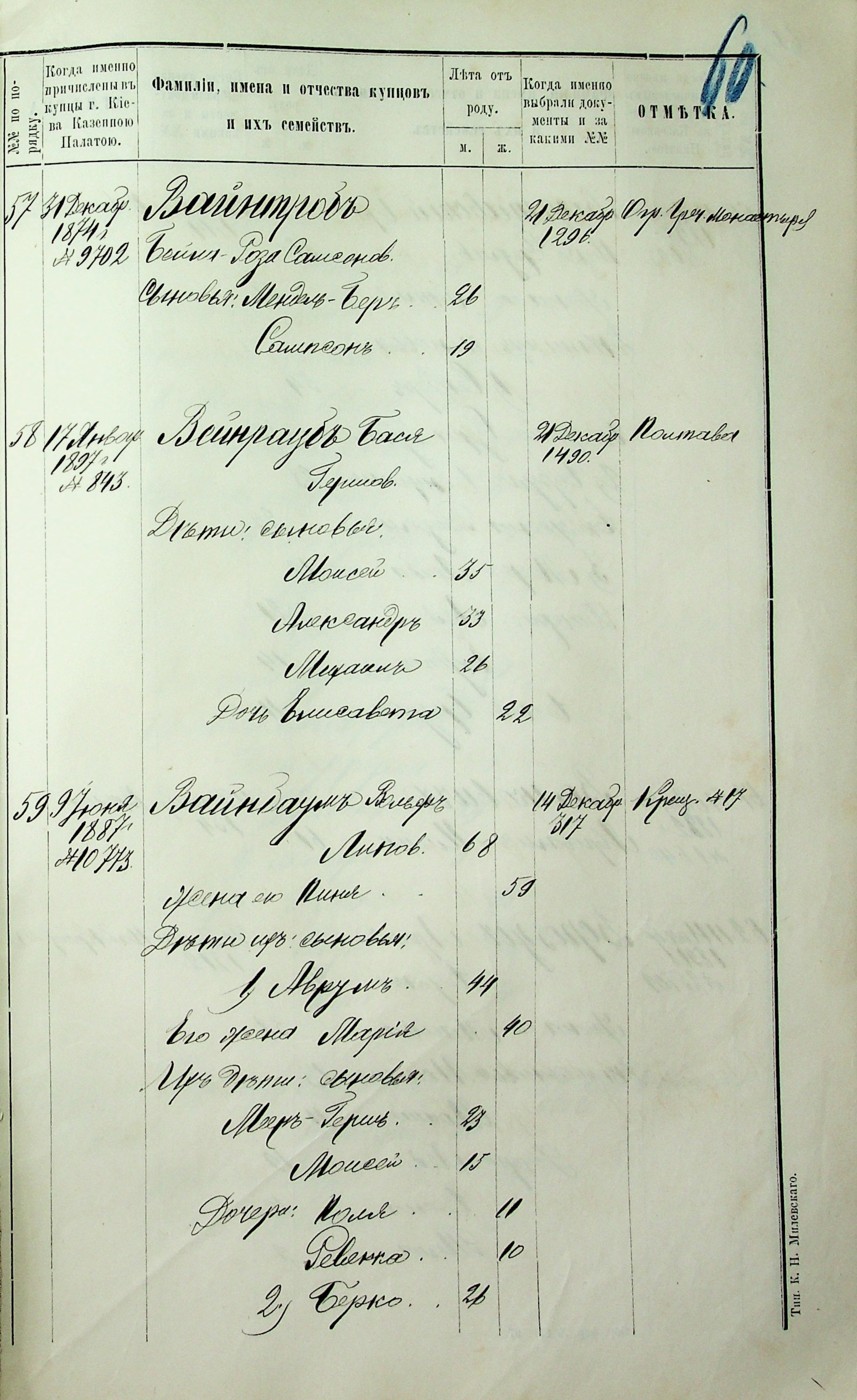 60
№№ по по-
рядку.
Когда именно
причислены въ
купцы г. Кіе-
ва Казенною
Палатою.
Фамиліи, имена и отчества купцовъ
и ихъ семействъ.
Лѣта отъ
роду.
м. ж.
Когда именно
выбрали доку-
менты и за
какими №№
ОТМѢТКА.
57 31 Декабр Вайнтробъ 21 Декабр Огр. Греч. монастыря
1874 г. 1296.
№ 9702 Бейля-Роза Самсонов.
Сыновья: Мендель-Беръ 26
Сампсонъ 19
58 17 Январ Вейнраубъ Бася 21 Декабр Полтава
1897 г. 1490.
№ 843. Гершов.
Дѣти: сыновья:
Моисей 35
Александръ 33
Михаилъ 26
Дочь Елисавета 22
59 9 Іюня Вайнбаумъ Вольфъ 14 Декабр Крещ. №17
1887 г. 317
№ 10773. Линов. 68
Жена его 59
Дѣти ихъ: сыновья:
1) Аврумъ 44
Его жена Марія 40
Ихъ дѣти: сыновья:
Мееръ-Гершъ 23
Моисей 15
Дочери: Поля 11
Ревекка 10
2) Берко 26
Тип. К. Н. Милевскаго.